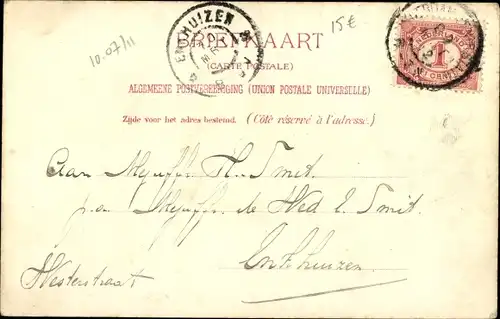 10.07/11
15€
ENKHUIZEN
BRIEFKAART
(CARTE POSTALE)
ALGEMEENE POSTVEREENIGING (UNION POSTALE UNIVERSELLE)
Zijde voor het adres bestemd. (Côté réservé à l'adresse.)
1
Aan Mejuffr. H. Smit.
p/a Mejuffr. de Wed E. Smit.
Enkhuizen.
Westerstraat